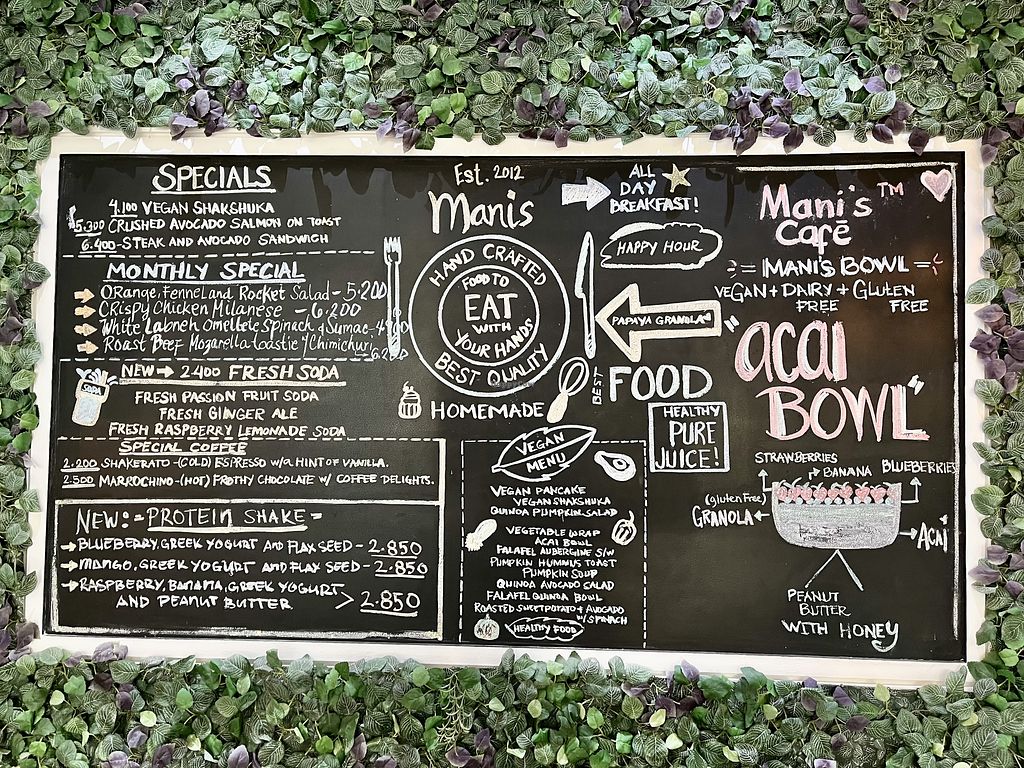 SPECIALS
4.100 VEGAN SHAKSHUKA
5.300 CRUSHED AVOCADO SALMON ON TOAST
6.400-STEAK AND AVOCADO SANDWICH
MONTHLY SPECIAL
Orange, Fennel and Rocket Salad - 5.200
Crispy Chicken Milanese - 6.200
White Labneh Omellete, Spinach & Sumac-
Roast Beef Mozarella toastie & Chimichuri
NEW → 2.400 FRESH SODA
SODA
FRESH PASSION FRUIT SODA
FRESH GINGER ALE
FRESH RASPBERRY LEMONADE SODA
SPECIAL COFFEE
2.200 SHAKERATO-(COLD) ESPRESSO W/a HINT OF VANILLA.
2.500 MARROCHINO-(HOT) FROTHY CHOCOLATE W/ COFFEE DELIGHTS.
NEW:=PROTEIN SHAKE=
→BLUEBERRY, GREEK YOGURT AND FLAX SEED - 2.850
→MANGO, GREEK YOGURT AND FLAX SEED - 2.850
→RASPBERRY, BANANA, GREEK YOGURT
AND PEANUT BUTTER > 2.850
Est. 2012
Manis
HAND CRAFTED
FOOD TO
EAT
WITH
YOUR HANDS
BEST QUALITY
HOMEMADE
ALL
DAY
BREAKFAST!
HAPPY HOUR
PAPAYA GRANOLA
BEST FOOD
HEALTHY
PURE
JUICE!
VEGAN
MENU
VEGAN PANCAKE
VEGAN SHAKSHUKA
QUINOA PUMPKIN SALAD
VEGETABLE WRAP
ACAI BOWL
FALAFEL AUBERGINE S/W
PUMPKIN HUMMUS TOAST
PUMPKIN SOUP
QUINOA AVOCADO CALAD
FALAFEL QUINOA BOWL
ROASTED SWEETPOTATO & AVOCADO
W/ SPINACH
HEALTHY FOOD
Mani's TM
Café
=MANI'S BOWL=
VEGAN + DAIRY + GLUTEN
FREE FREE
"ACAI
BOWL"
STRAWBERRIES
BANANA
BLUEBERRIES
(gluten Free)
GRANOLA
ACAI
PEANUT
BUTTER
WITH HONEY